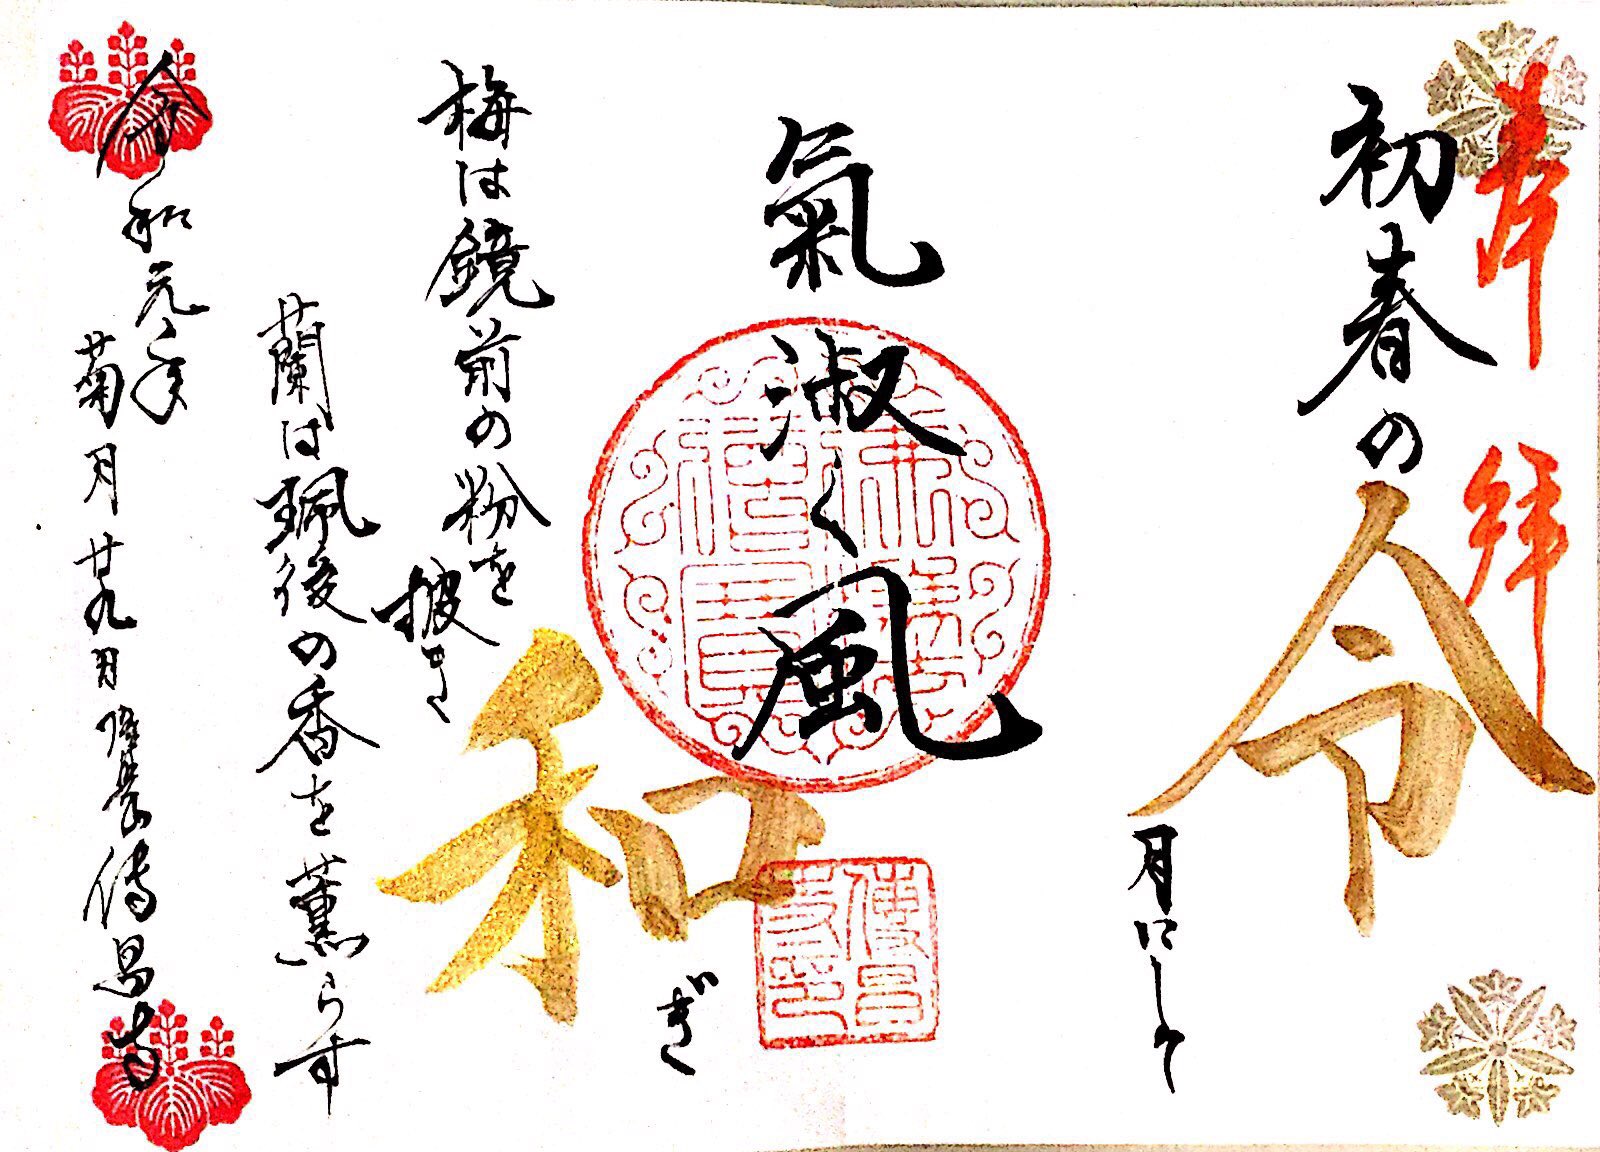 奉拝
初春の令
月にして
氣淑く風
和ぎ
梅は鏡前の粉を
披き
蘭は珮後の香を薫らす
令和元年
菊月廿九日 傳昌寺